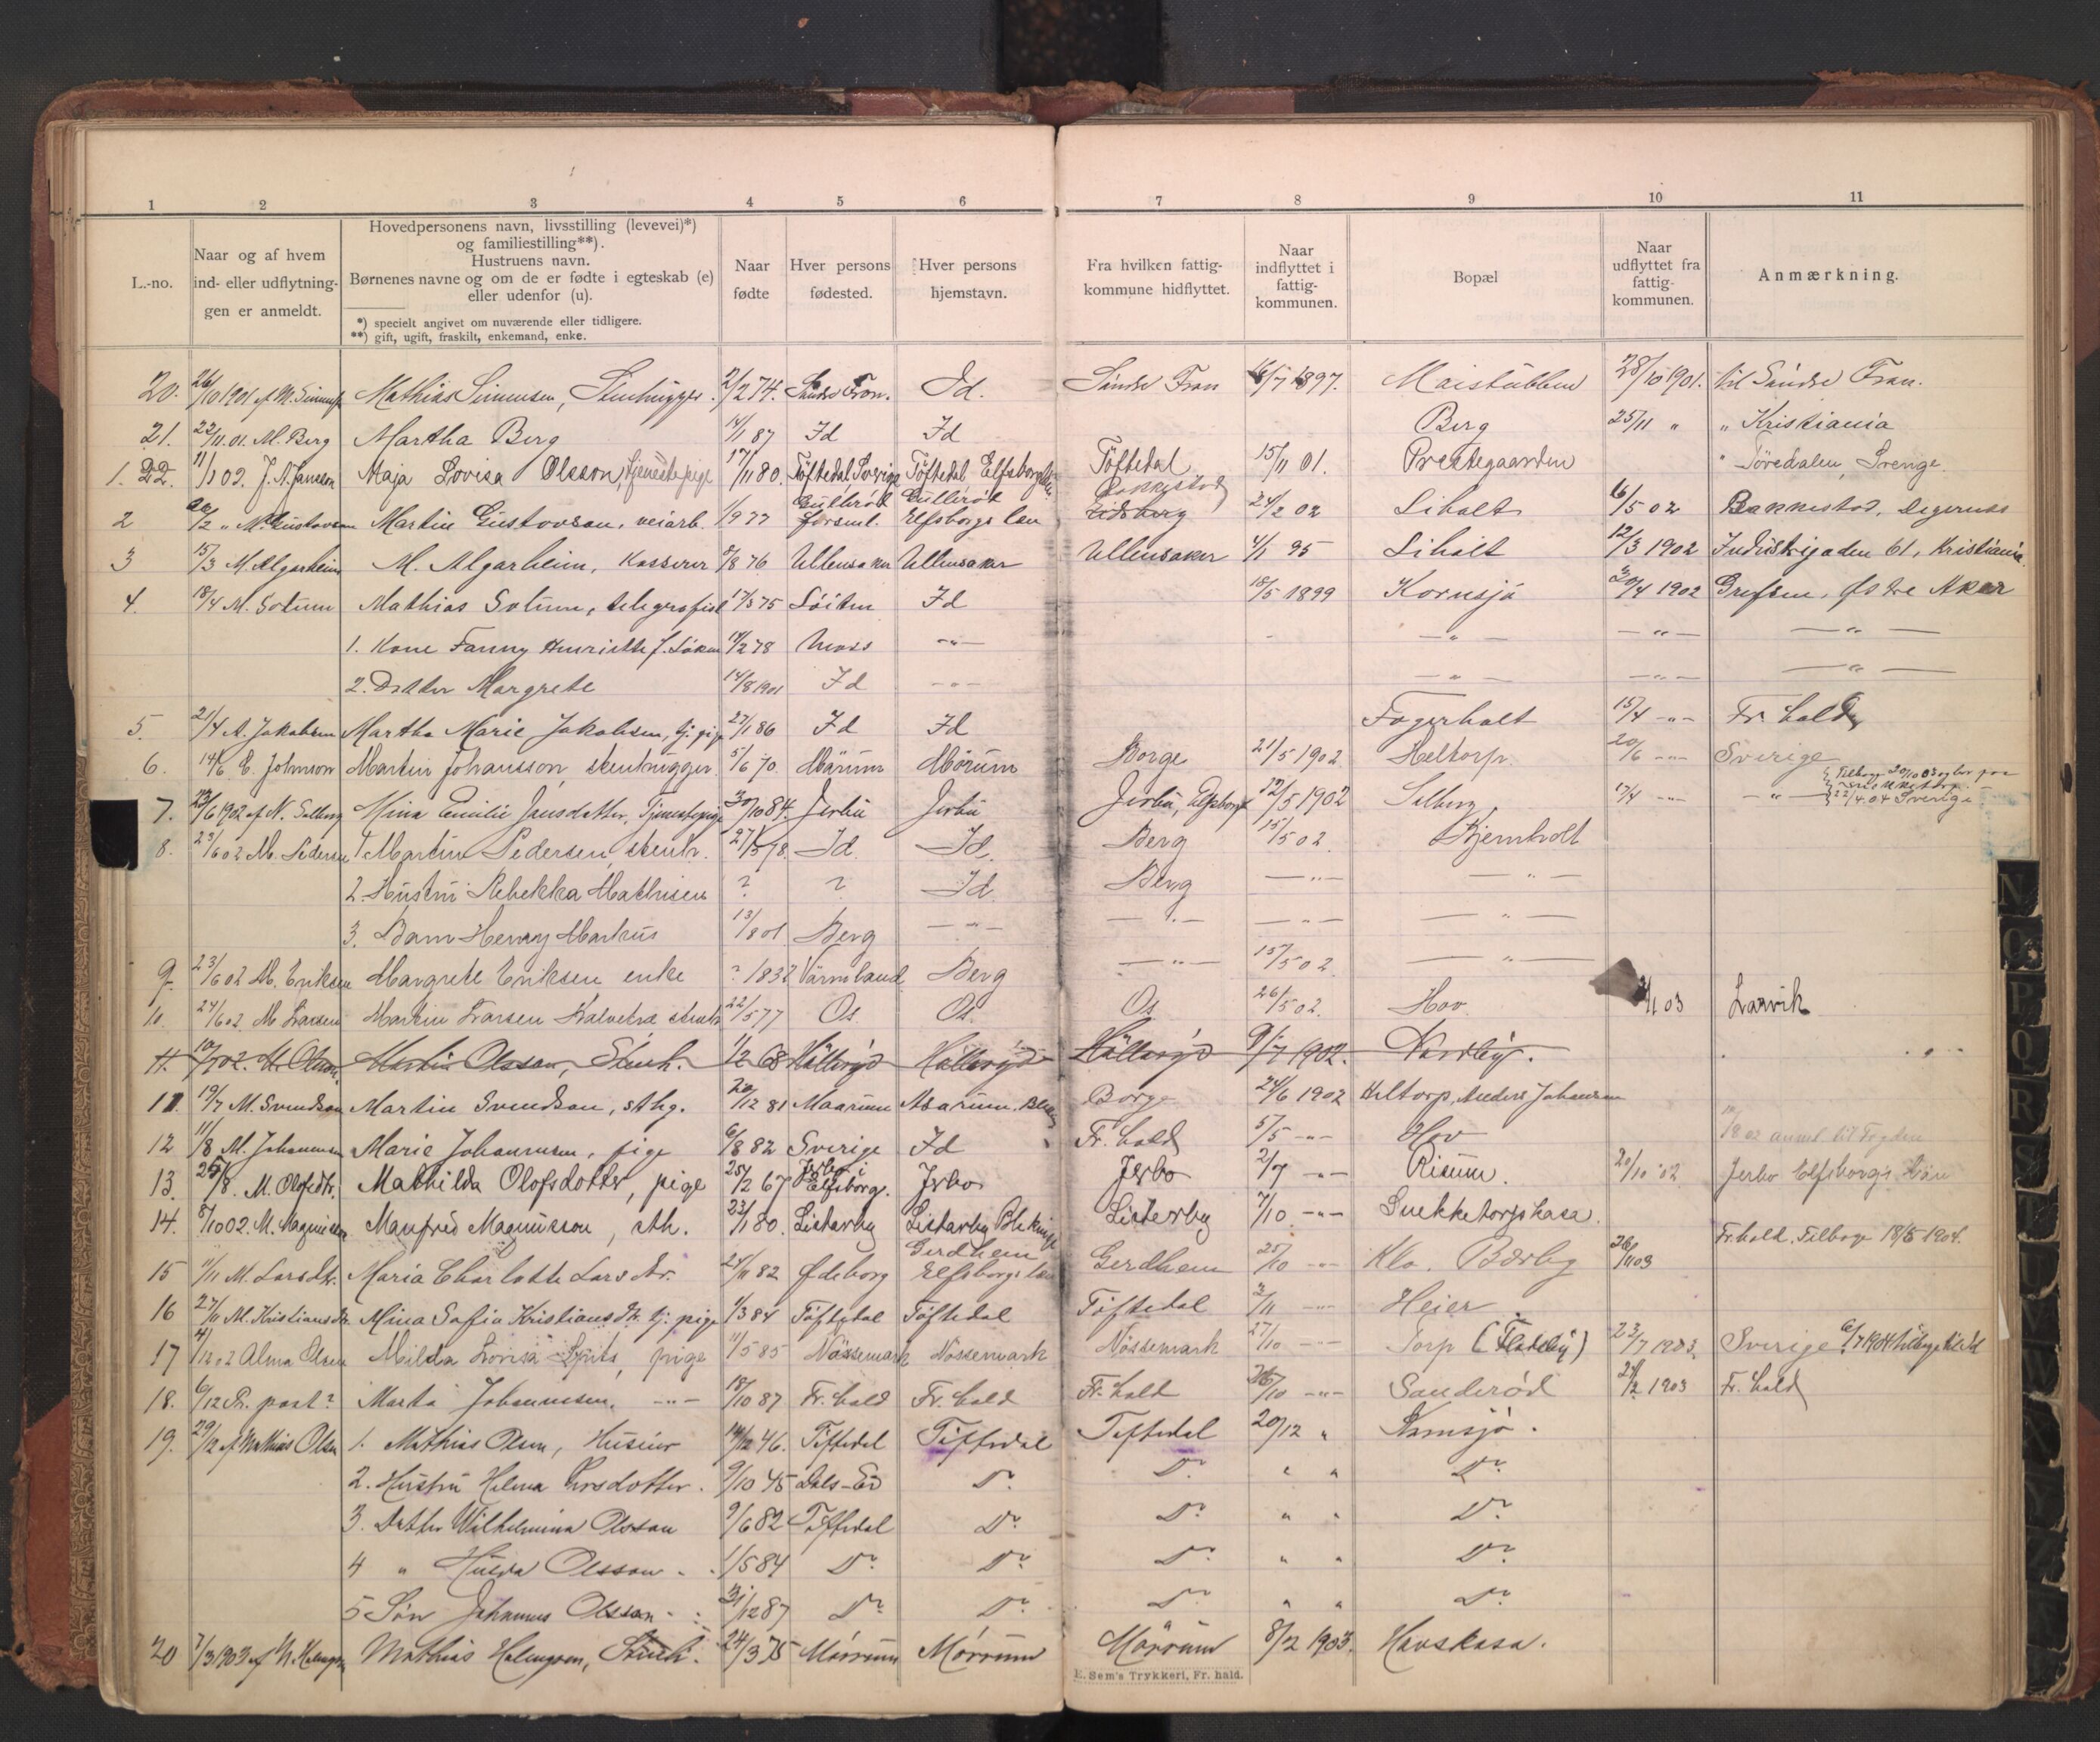 1 2 3 4 5 6 7 8 9 10 11
L.-no.
Naar og af hvem
ind- eller udflytning-
gen er anmeldt.
Hovedpersonens navn, livsstilling (levevei)*)
og familiestilling**).
Hustruens navn.
Børnenes navne og om de er fødte i egteskab (e)
eller udenfor (u).
*) specielt angivet om nuværende eller tidligere.
**) gift, ugift, fraskilt, enkemand, enke.
Naar
fødte
Hver persons
fødested.
Hver persons
hjemstavn.
Fra hvilken fattig-
kommune hidflyttet.
Naar
indflyttet i
fattig-
kommunen.
Bopæl
Naar
udflyttet fra
fattig-
kommunen.
Anmærkning.
20. 26/10 1901 af M. Simens. Mathias Simensen, Stenhugger. 2/2 74. Søndre Fron. Id. Søndre Fron 6/7 1897. Maistubben 28/10 1901. til Søndre Fron.
21. 22/11.01. M. Berg Martha Berg 14/1 87 Id Id Berg 25/11 " " Kristiania
1. 22. 11/1 02. J. A. Jansson Maja Lovisa Olsson, tjenestepige 17/11 80. Töftedal Sverige Töftedal Elfsborgslän. Töftedal 15/11 01. Prestegaarden " Töredalen, Sverige.
2 20/2 " M. Gustavson Martin Gustovson, veiarb. 1/9 77 Gullbröt forsml. Gullbröt Elfsborgs län Bakkestad Eidsberg 24/2 02 Liholt 6/5 02 Bakkestad, Degernes
3 15/3 M. Algarheim M. Algarheim, Kasserer 5/8 76 Ullensaker Ullensaker Ullensaker 4/1 95 Liholt 12/3 1902 Industrigaden 61, Kristiania.
4. 18/4 M. Sotum Mathias Sotum, telegrafist 17/3 75 Löiten Id 18/5 1899 Kornsjø 30/4 1902 Grefsen, Østre Aker
1. Kone Fanny Henriette f. Løken 14/2 78 Moss —"— —"— —"— —"—
2. Datter Margrete 14/8 1901 Id —"— —"— —"— —"—
5. 21/4 A. Jakobsen Martha Marie Jakobsen, tj. pige 27/1 86 Id Id Fagerholt 15/4 —"— Fr. hald
6. 14/6 E. Johnson Martin Johansson, stenhugger. 5/6 70. Mörum Mörum Borge 21/5 1902 Heltorp. 20/6 —"— Sverige
7. 23/6 1902 af N. Solberg Mina Emilie Jansdatter, Tjenestepige 30/10 84. Jerbu Jerbu Jerbu, Elfsborg 12/5 1902 Solberg 17/4 —"— —"— 22/4.04 Sverige
8. 23/6 02 M. Pedersen 1 Martin Pedersen, stenh. 27/5 78. Id. Id. Berg 15/5 02. Bjernholt
2. Hustru Rebekka Mathisen ? ? Id. Berg —"— —"—
3. Barn Henry Markus 13/8 01 Berg —"— —"— —"— —"—
9. 23/6 02 M. Eriksen Margrete Eriksen enke ? 1832 Värmland Berg —"— 15/5 02. —"—
10. 24/6 02. M Larsen Martin Larsen stenh 22/5 77 Os Os. Os 26/5 02. Hov. 1/1 03 Larvik
11. 10/7 02. M. Olsson. Martin Olsson, Stenh. 11/2 68 Hällaryd Hällaryd Hällaryd 9/7 1902. Nordby.
11. 19/7 M. Svendson Martin Svendson, sthg. 20/12 81 Maarum Asarum, Borge 24/6 1902 Heltorp, Anders Johansen
12 11/8 M. Johannesen Marie Johannesen, pige 6/8 82 Sverige Id Fr. hald 5/5 —"— Hov 02 anmel. til Fogden
13. 25/8. M. Olofsdtr. Mathilda Olofsdotter, pige 25/2 67 Jerbo i Elfsborg. Jerbo. Jerbo 2/7 —"— Risum. 20/10 02 Jerbo Elfsborgs Län
14. 8/10 02. M. Magnusson Manfred Magnusson, sth. 23/1 80. Listerby Listerby Blekinge Listerby 7/10 —"— Snekketorpskasa. Fr.hald. Tilbage 18/5 1904.
15 11/11 M. Larsdtr. Maria Charlotte Larsdtr. 24/11 82 Ødeborg Gerdhem Elfsborgs län Gerdhem 25/10 —"— Klo. Bærby 26/11 03
16 27/11 M. Kristiansdtr. Mina Sofia Kristiansdtr. tj. pige 1/3 84 Töftedal Töftedal Töftedal 3/11 —"— Heier.
17 4/12 02 Alma Olsen Milda Lovisa, pige 11/5 85 Nössemark Nössemark Nössemark 27/10 —"— Torp (Fladeby) 23/7 1903. Sverige. 6/7 1904
18. 6/12 Pr. post? Marta Johannesen, —"— 18/10 87 Fr. hald Fr. hald Fr. hald 26/10 —"— Sanderød 24/2 1903 Fr. hald
19. 29/12 af Mathias Olsen 1. Mathias Olsen, Huseier 14/12 46. Töftedal Töftedal Töftedal 20/12 " Kornsjø.
2. Hustru Helena Larsdotter. 9/10 45 Dals-Ed Do. Do. " " Do
3. Datter Wilhelmina Olsson 9/6 82 Töftedal Do. Do. " " Do
4 " Hulda Olsson 1/5 84 Do. Do. Do. " " Do
5 Søn Johannes Olsson 31/12 87 Do Do. Do. " " Do
20 7/3 1903 af M. Holmgren Mathias Holmgren, Stenh. 24/3 75 Mörrum Mörrum Mörrum 8/2 1903. Havskasa.
E. Sem's Trykkeri, Fr. hald.
N O P Q R S T U V W X Y Z